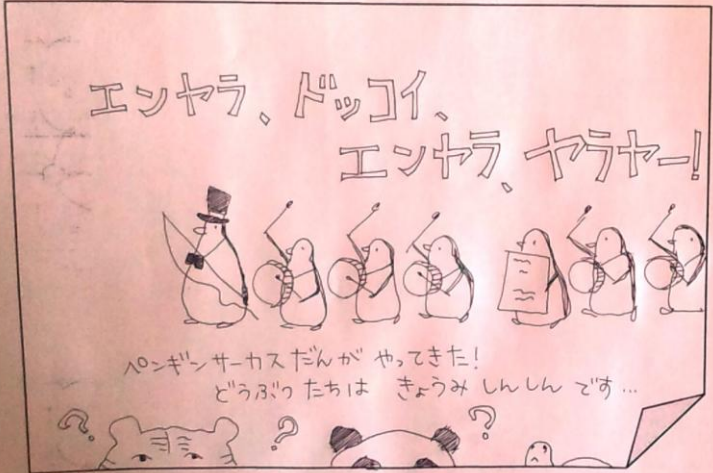 エンヤラ、ドッコイ、
エンヤラ、ヤラヤー!
ペンギンサーカスだんが やってきた!
どうぶつたちは きょうみしんしんです…
? ? ?